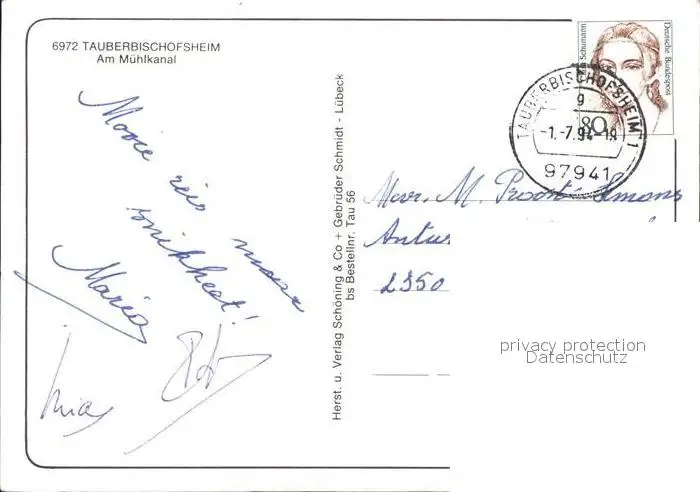 6972 TAUBERBISCHOFSHEIM
Am Mühlkanal
Mooie reis maar
snikheet!
Maria
Herst. u. Verlag Schöning & Co + Gebrüder Schmidt - Lübeck
bs Bestellnr. Tau 56
Schumann
Deutsche Bundespost
80
TAUBERBISCHOFSHEIM 1
g
-1.-7.94-18
97941
Mevr. M. Simons
2350
privacy protection
Datenschutz